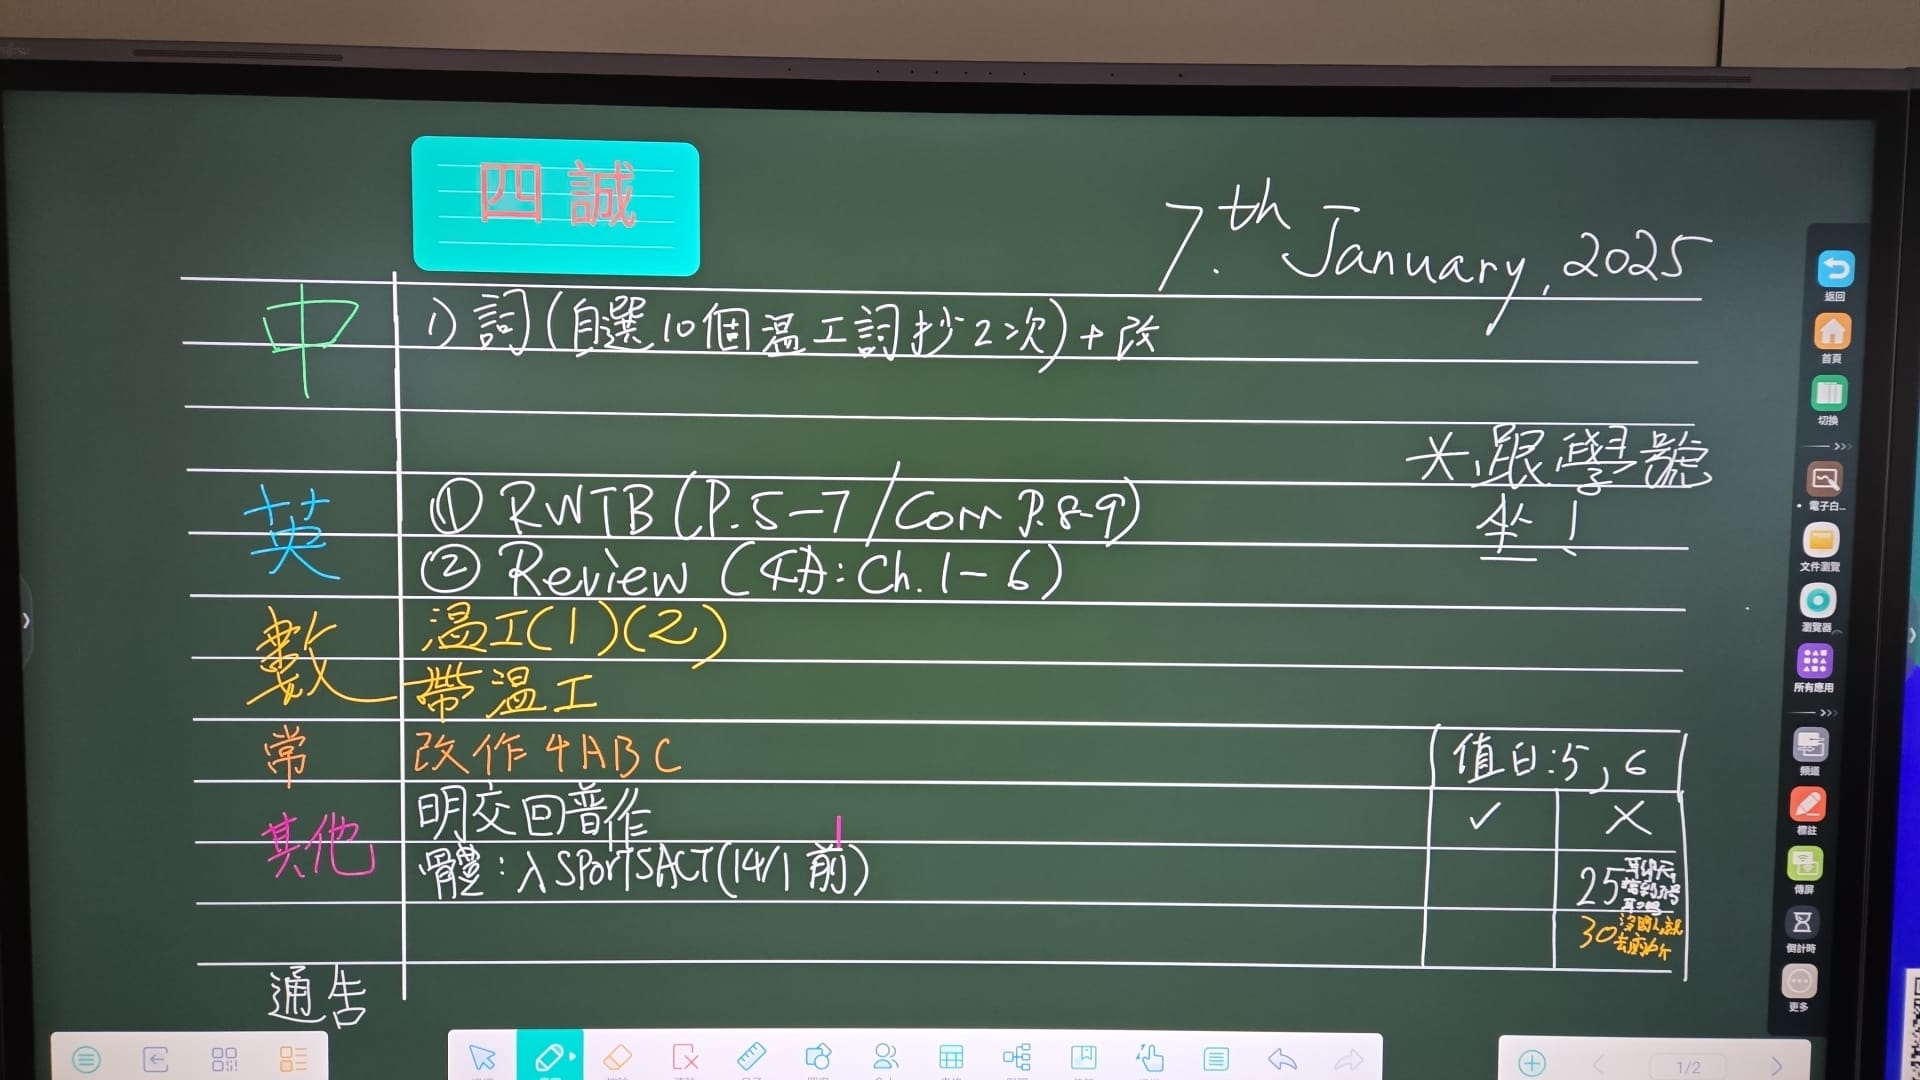 四誠
7.th January, 2025
中
1) 詞(自選10個溫工詞抄2次)+改
*跟學號
坐!
英
① RWTB (P.5-7/Corr P.8-9)
② Review (4A: Ch.1-6)
數
溫工(1)(2)
帶溫工
常
改作4ABC
值日:5,6
✓
X
其他
明交回普作
體:入SPORTSACT(14/1前)
25
30
通告
返回
首頁
切換
電子白...
文件瀏覽
瀏覽器
所有應用
頻道
標註
傳屏
倒計時
更多
1/2